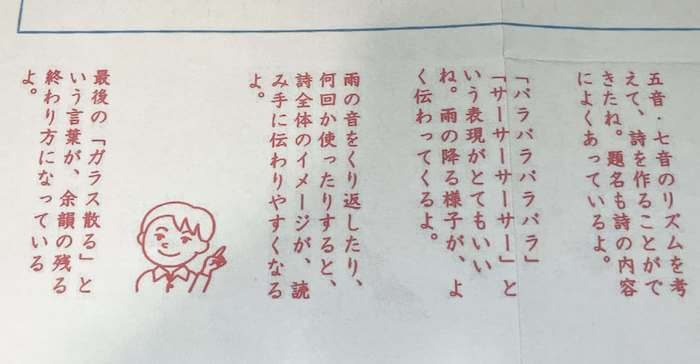 五音・七音のリズムを考
えて、詩を作ることがで
きたね。題名も詩の内容
によくあっているよ。
「パラパラパラパラ」
「サーサーサーサー」と
いう表現がとてもいい
ね。雨の降る様子が、よ
く伝わってくるよ。
雨の音をくり返したり、
何回か使ったりすると、
詩全体のイメージが、読
み手に伝わりやすくなる
よ。
最後の「ガラス散る」と
いう言葉が、余韻の残る
終わり方になっている
よ。